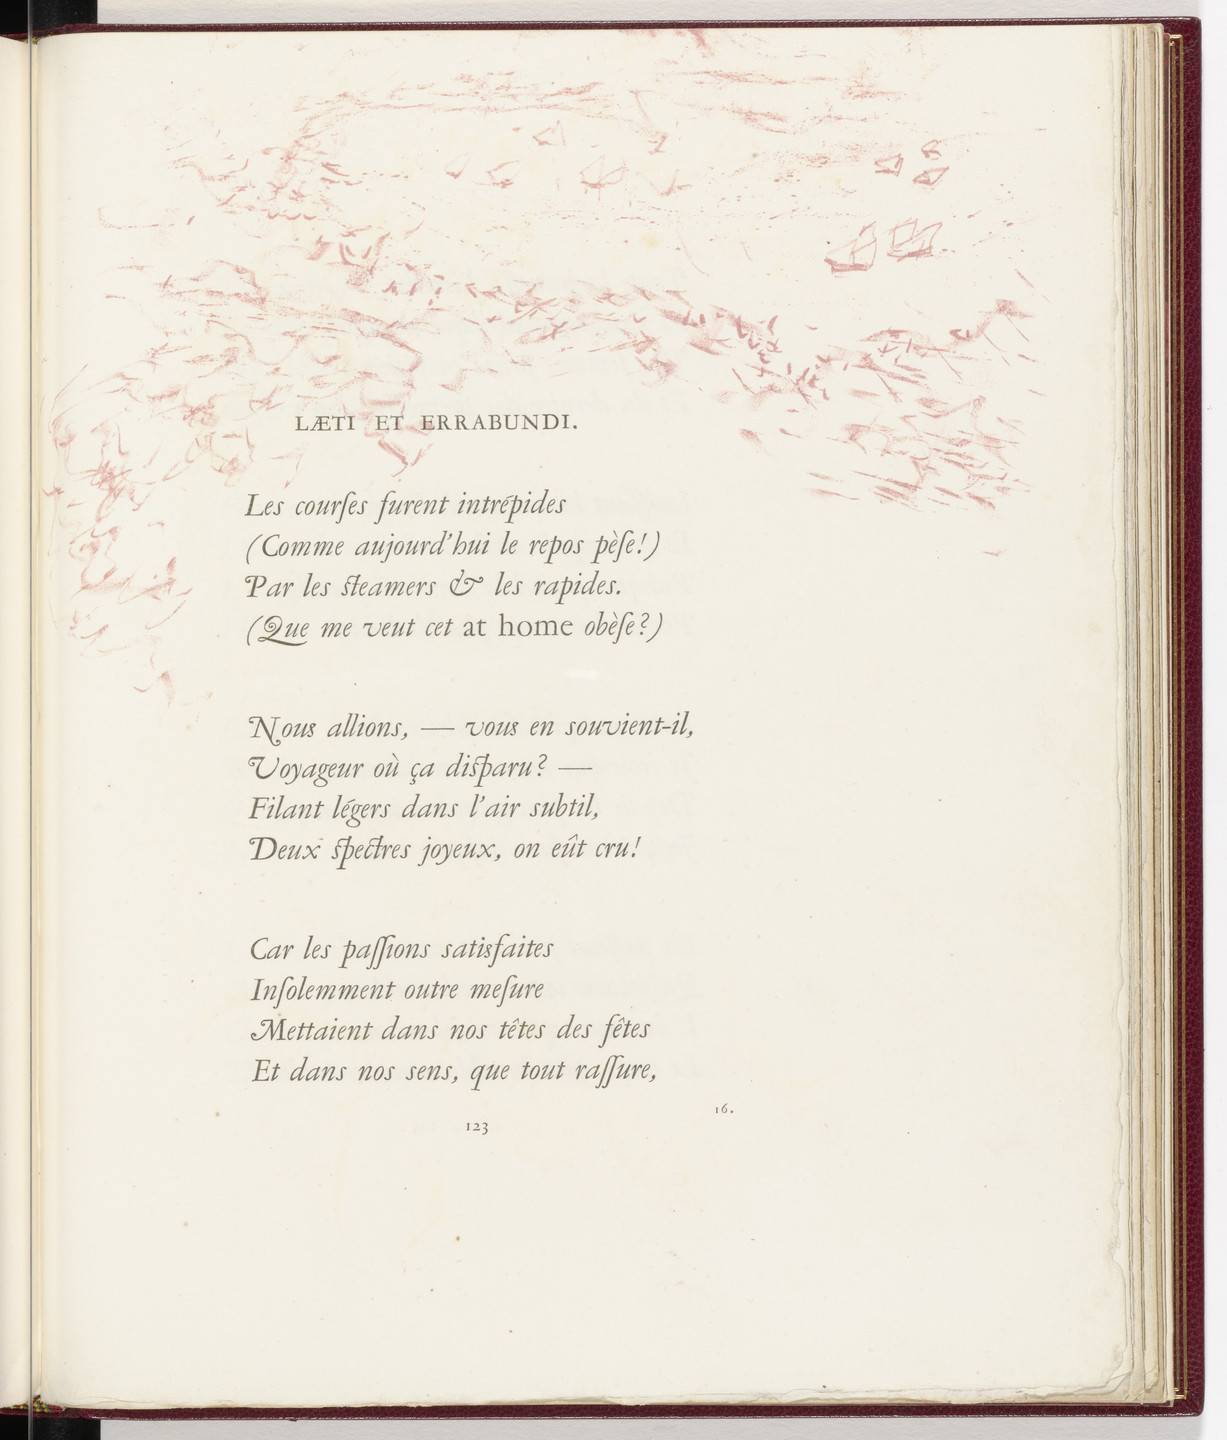 LÆTI ET ERRABUNDI.
Les courſes furent intrépides
(Comme aujourd'hui le repos pèſe!)
Par les steamers & les rapides.
(Que me veut cet at home obèſe?)
Nous allions, — vous en souvient-il,
Voyageur où ça disparu? —
Filant légers dans l'air subtil,
Deux spectres joyeux, on eût cru!
Car les paſſions satisfaites
Inſolemment outre meſure
Mettaient dans nos têtes des fêtes
Et dans nos sens, que tout raſſure,
16.
123